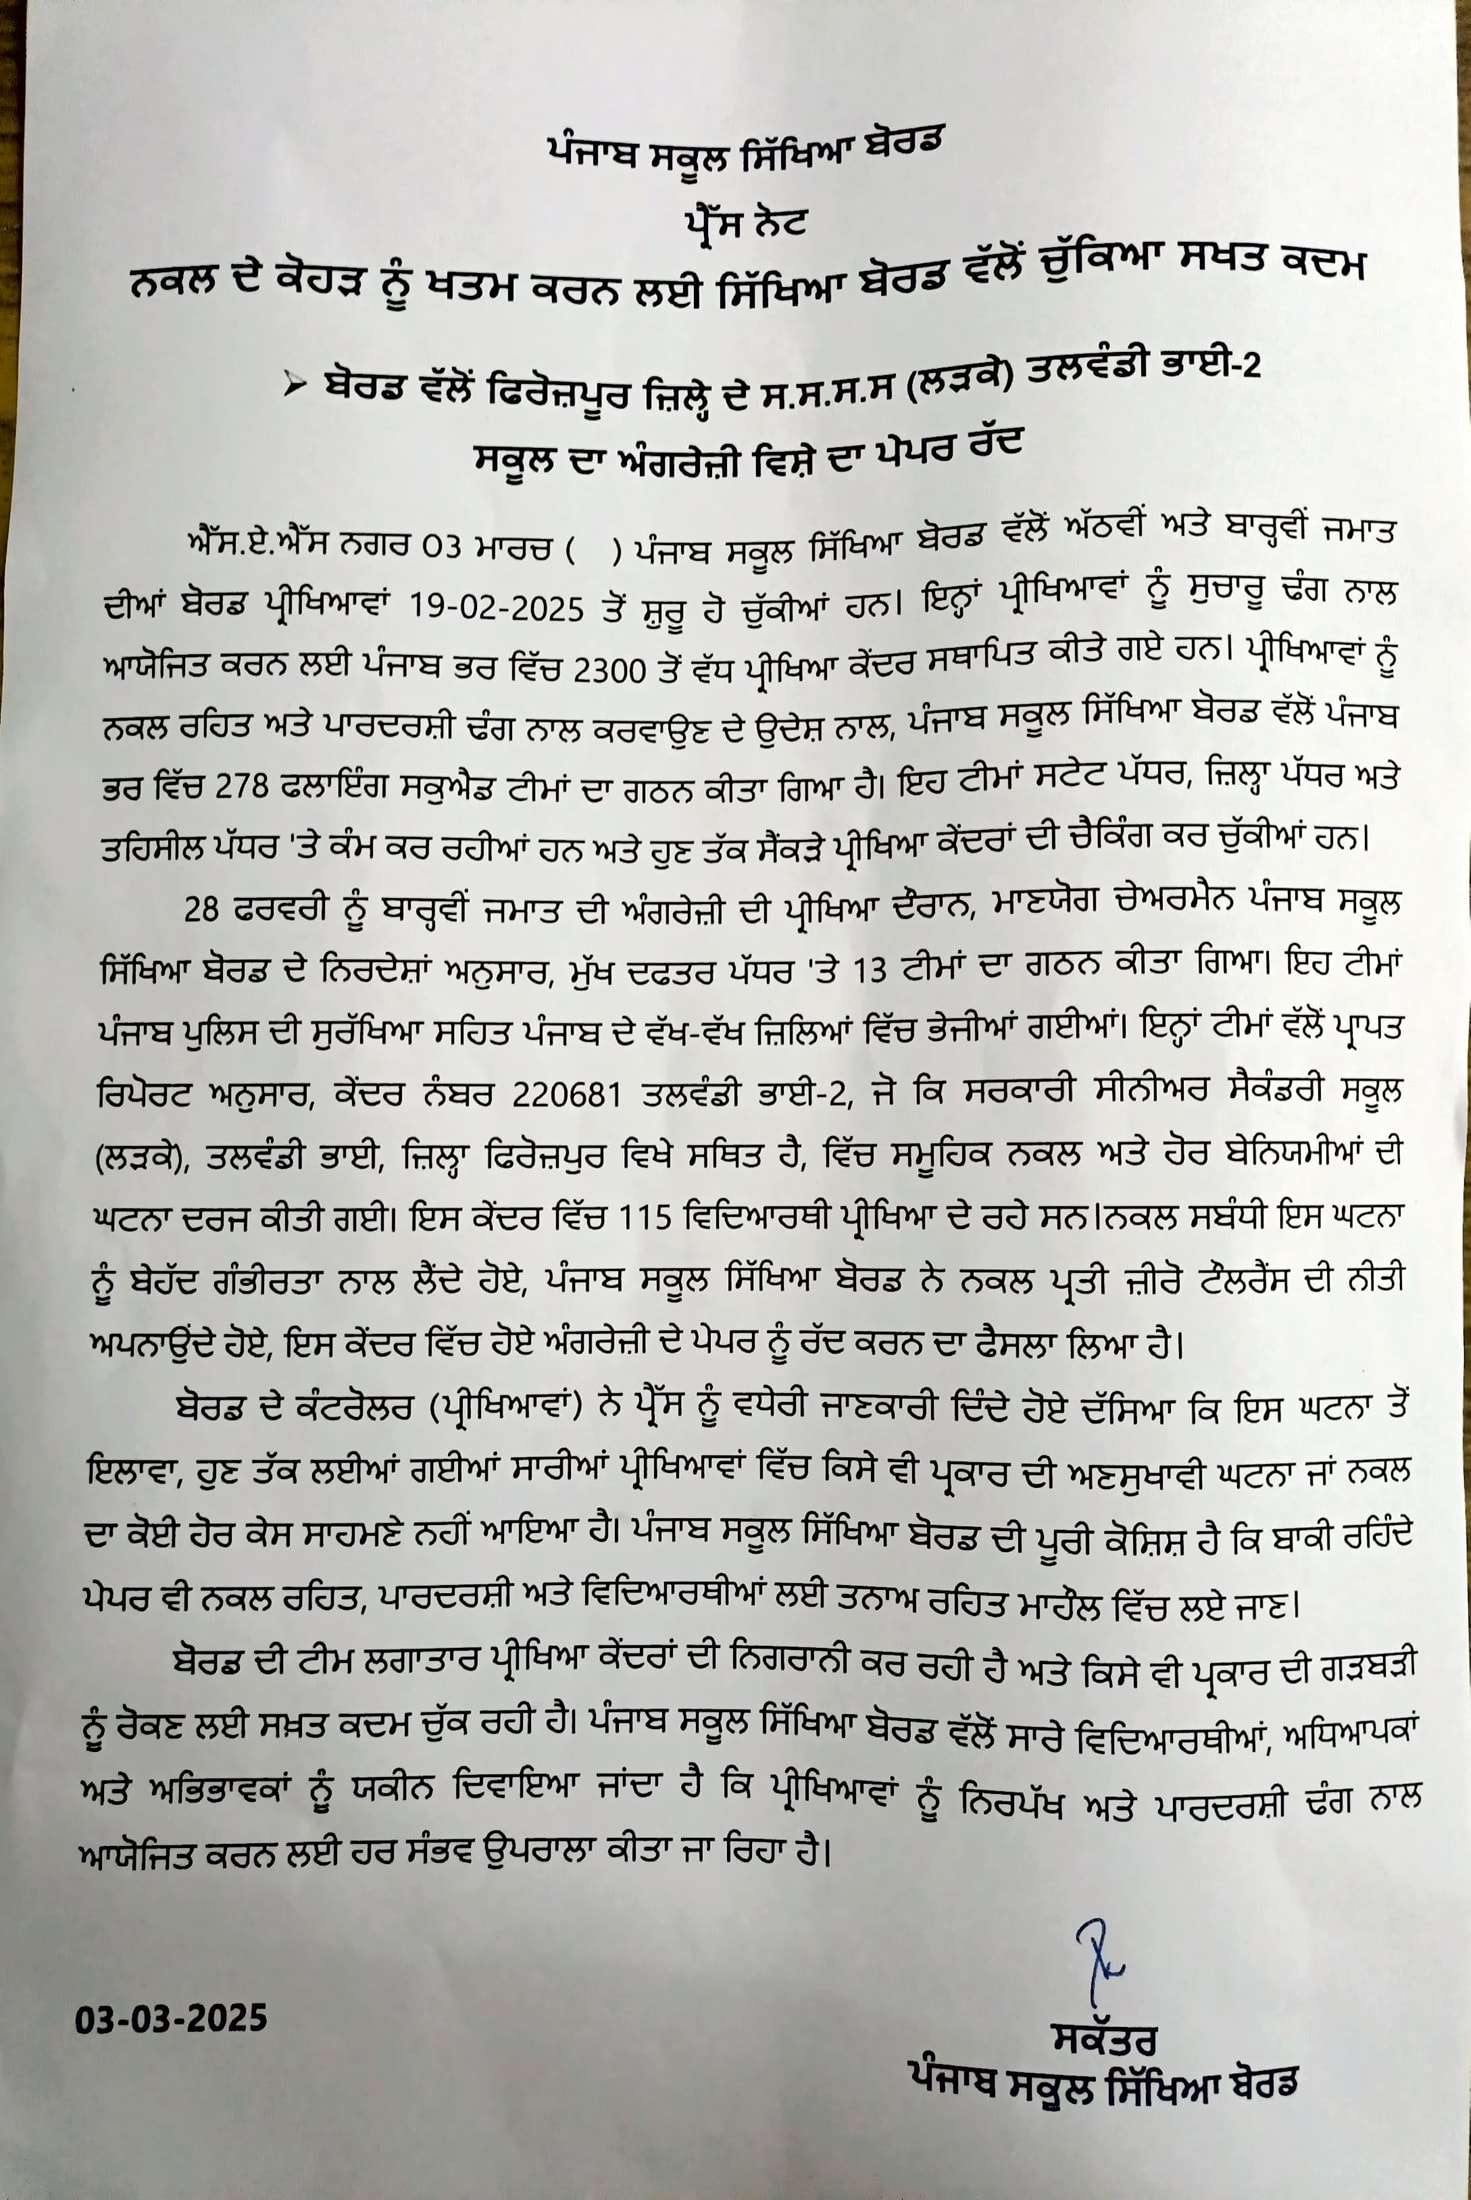 ਪੰਜਾਬ ਸਕੂਲ ਸਿੱਖਿਆ ਬੋਰਡ
ਪ੍ਰੈੱਸ ਨੋਟ
ਨਕਲ ਦੇ ਕੋਹੜ ਨੂੰ ਖਤਮ ਕਰਨ ਲਈ ਸਿੱਖਿਆ ਬੋਰਡ ਵੱਲੋਂ ਚੁੱਕਿਆ ਸਖਤ ਕਦਮ
➢ ਬੋਰਡ ਵੱਲੋਂ ਫਿਰੋਜ਼ਪੂਰ ਜ਼ਿਲ੍ਹੇ ਦੇ ਸ.ਸ.ਸ.ਸ (ਲੜਕੇ) ਤਲਵੰਡੀ ਭਾਈ-2
ਸਕੂਲ ਦਾ ਅੰਗਰੇਜ਼ੀ ਵਿਸ਼ੇ ਦਾ ਪੇਪਰ ਰੱਦ
ਐੱਸ.ਏ.ਐੱਸ ਨਗਰ 03 ਮਾਰਚ (   ) ਪੰਜਾਬ ਸਕੂਲ ਸਿੱਖਿਆ ਬੋਰਡ ਵੱਲੋਂ ਅੱਠਵੀਂ ਅਤੇ ਬਾਰ੍ਹਵੀਂ ਜਮਾਤ
ਦੀਆਂ ਬੋਰਡ ਪ੍ਰੀਖਿਆਵਾਂ 19-02-2025 ਤੋਂ ਸ਼ੁਰੂ ਹੋ ਚੁੱਕੀਆਂ ਹਨ। ਇਨ੍ਹਾਂ ਪ੍ਰੀਖਿਆਵਾਂ ਨੂੰ ਸੁਚਾਰੂ ਢੰਗ ਨਾਲ
ਆਯੋਜਿਤ ਕਰਨ ਲਈ ਪੰਜਾਬ ਭਰ ਵਿੱਚ 2300 ਤੋਂ ਵੱਧ ਪ੍ਰੀਖਿਆ ਕੇਂਦਰ ਸਥਾਪਿਤ ਕੀਤੇ ਗਏ ਹਨ। ਪ੍ਰੀਖਿਆਵਾਂ ਨੂੰ
ਨਕਲ ਰਹਿਤ ਅਤੇ ਪਾਰਦਰਸ਼ੀ ਢੰਗ ਨਾਲ ਕਰਵਾਉਣ ਦੇ ਉਦੇਸ਼ ਨਾਲ, ਪੰਜਾਬ ਸਕੂਲ ਸਿੱਖਿਆ ਬੋਰਡ ਵੱਲੋਂ ਪੰਜਾਬ
ਭਰ ਵਿੱਚ 278 ਫਲਾਇੰਗ ਸਕੁਐਡ ਟੀਮਾਂ ਦਾ ਗਠਨ ਕੀਤਾ ਗਿਆ ਹੈ। ਇਹ ਟੀਮਾਂ ਸਟੇਟ ਪੱਧਰ, ਜ਼ਿਲ੍ਹਾ ਪੱਧਰ ਅਤੇ
ਤਹਿਸੀਲ ਪੱਧਰ 'ਤੇ ਕੰਮ ਕਰ ਰਹੀਆਂ ਹਨ ਅਤੇ ਹੁਣ ਤੱਕ ਸੈਂਕੜੇ ਪ੍ਰੀਖਿਆ ਕੇਂਦਰਾਂ ਦੀ ਚੈਕਿੰਗ ਕਰ ਚੁੱਕੀਆਂ ਹਨ।
28 ਫਰਵਰੀ ਨੂੰ ਬਾਰ੍ਹਵੀਂ ਜਮਾਤ ਦੀ ਅੰਗਰੇਜ਼ੀ ਦੀ ਪ੍ਰੀਖਿਆ ਦੌਰਾਨ, ਮਾਣਯੋਗ ਚੇਅਰਮੈਨ ਪੰਜਾਬ ਸਕੂਲ
ਸਿੱਖਿਆ ਬੋਰਡ ਦੇ ਨਿਰਦੇਸ਼ਾਂ ਅਨੁਸਾਰ, ਮੁੱਖ ਦਫਤਰ ਪੱਧਰ 'ਤੇ 13 ਟੀਮਾਂ ਦਾ ਗਠਨ ਕੀਤਾ ਗਿਆ। ਇਹ ਟੀਮਾਂ
ਪੰਜਾਬ ਪੁਲਿਸ ਦੀ ਸੁਰੱਖਿਆ ਸਹਿਤ ਪੰਜਾਬ ਦੇ ਵੱਖ-ਵੱਖ ਜ਼ਿਲਿਆਂ ਵਿੱਚ ਭੇਜੀਆਂ ਗਈਆਂ। ਇਨ੍ਹਾਂ ਟੀਮਾਂ ਵੱਲੋਂ ਪ੍ਰਾਪਤ
ਰਿਪੋਰਟ ਅਨੁਸਾਰ, ਕੇਂਦਰ ਨੰਬਰ 220681 ਤਲਵੰਡੀ ਭਾਈ-2, ਜੋ ਕਿ ਸਰਕਾਰੀ ਸੀਨੀਅਰ ਸੈਕੰਡਰੀ ਸਕੂਲ
(ਲੜਕੇ), ਤਲਵੰਡੀ ਭਾਈ, ਜ਼ਿਲ੍ਹਾ ਫਿਰੋਜ਼ਪੁਰ ਵਿਖੇ ਸਥਿਤ ਹੈ, ਵਿੱਚ ਸਮੂਹਿਕ ਨਕਲ ਅਤੇ ਹੋਰ ਬੇਨਿਯਮੀਆਂ ਦੀ
ਘਟਨਾ ਦਰਜ ਕੀਤੀ ਗਈ। ਇਸ ਕੇਂਦਰ ਵਿੱਚ 115 ਵਿਦਿਆਰਥੀ ਪ੍ਰੀਖਿਆ ਦੇ ਰਹੇ ਸਨ।ਨਕਲ ਸਬੰਧੀ ਇਸ ਘਟਨਾ
ਨੂੰ ਬੇਹੱਦ ਗੰਭੀਰਤਾ ਨਾਲ ਲੈਂਦੇ ਹੋਏ, ਪੰਜਾਬ ਸਕੂਲ ਸਿੱਖਿਆ ਬੋਰਡ ਨੇ ਨਕਲ ਪ੍ਰਤੀ ਜ਼ੀਰੋ ਟੌਲਰੈਂਸ ਦੀ ਨੀਤੀ
ਅਪਨਾਉਂਦੇ ਹੋਏ, ਇਸ ਕੇਂਦਰ ਵਿੱਚ ਹੋਏ ਅੰਗਰੇਜ਼ੀ ਦੇ ਪੇਪਰ ਨੂੰ ਰੱਦ ਕਰਨ ਦਾ ਫੈਸਲਾ ਲਿਆ ਹੈ।
ਬੋਰਡ ਦੇ ਕੰਟਰੋਲਰ (ਪ੍ਰੀਖਿਆਵਾਂ) ਨੇ ਪ੍ਰੈੱਸ ਨੂੰ ਵਧੇਰੀ ਜਾਣਕਾਰੀ ਦਿੰਦੇ ਹੋਏ ਦੱਸਿਆ ਕਿ ਇਸ ਘਟਨਾ ਤੋਂ
ਇਲਾਵਾ, ਹੁਣ ਤੱਕ ਲਈਆਂ ਗਈਆਂ ਸਾਰੀਆਂ ਪ੍ਰੀਖਿਆਵਾਂ ਵਿੱਚ ਕਿਸੇ ਵੀ ਪ੍ਰਕਾਰ ਦੀ ਅਣਸੁਖਾਵੀ ਘਟਨਾ ਜਾਂ ਨਕਲ
ਦਾ ਕੋਈ ਹੋਰ ਕੇਸ ਸਾਹਮਣੇ ਨਹੀਂ ਆਇਆ ਹੈ। ਪੰਜਾਬ ਸਕੂਲ ਸਿੱਖਿਆ ਬੋਰਡ ਦੀ ਪੂਰੀ ਕੋਸ਼ਿਸ਼ ਹੈ ਕਿ ਬਾਕੀ ਰਹਿੰਦੇ
ਪੇਪਰ ਵੀ ਨਕਲ ਰਹਿਤ, ਪਾਰਦਰਸ਼ੀ ਅਤੇ ਵਿਦਿਆਰਥੀਆਂ ਲਈ ਤਨਾਅ ਰਹਿਤ ਮਾਹੌਲ ਵਿੱਚ ਲਏ ਜਾਣ।
ਬੋਰਡ ਦੀ ਟੀਮ ਲਗਾਤਾਰ ਪ੍ਰੀਖਿਆ ਕੇਂਦਰਾਂ ਦੀ ਨਿਗਰਾਨੀ ਕਰ ਰਹੀ ਹੈ ਅਤੇ ਕਿਸੇ ਵੀ ਪ੍ਰਕਾਰ ਦੀ ਗੜਬੜੀ
ਨੂੰ ਰੋਕਣ ਲਈ ਸਖ਼ਤ ਕਦਮ ਚੁੱਕ ਰਹੀ ਹੈ। ਪੰਜਾਬ ਸਕੂਲ ਸਿੱਖਿਆ ਬੋਰਡ ਵੱਲੋਂ ਸਾਰੇ ਵਿਦਿਆਰਥੀਆਂ, ਅਧਿਆਪਕਾਂ
ਅਤੇ ਅਭਿਭਾਵਕਾਂ ਨੂੰ ਯਕੀਨ ਦਿਵਾਇਆ ਜਾਂਦਾ ਹੈ ਕਿ ਪ੍ਰੀਖਿਆਵਾਂ ਨੂੰ ਨਿਰਪੱਖ ਅਤੇ ਪਾਰਦਰਸ਼ੀ ਢੰਗ ਨਾਲ
ਆਯੋਜਿਤ ਕਰਨ ਲਈ ਹਰ ਸੰਭਵ ਉਪਰਾਲਾ ਕੀਤਾ ਜਾ ਰਿਹਾ ਹੈ।
03-03-2025
ਸਕੱਤਰ
ਪੰਜਾਬ ਸਕੂਲ ਸਿੱਖਿਆ ਬੋਰਡ